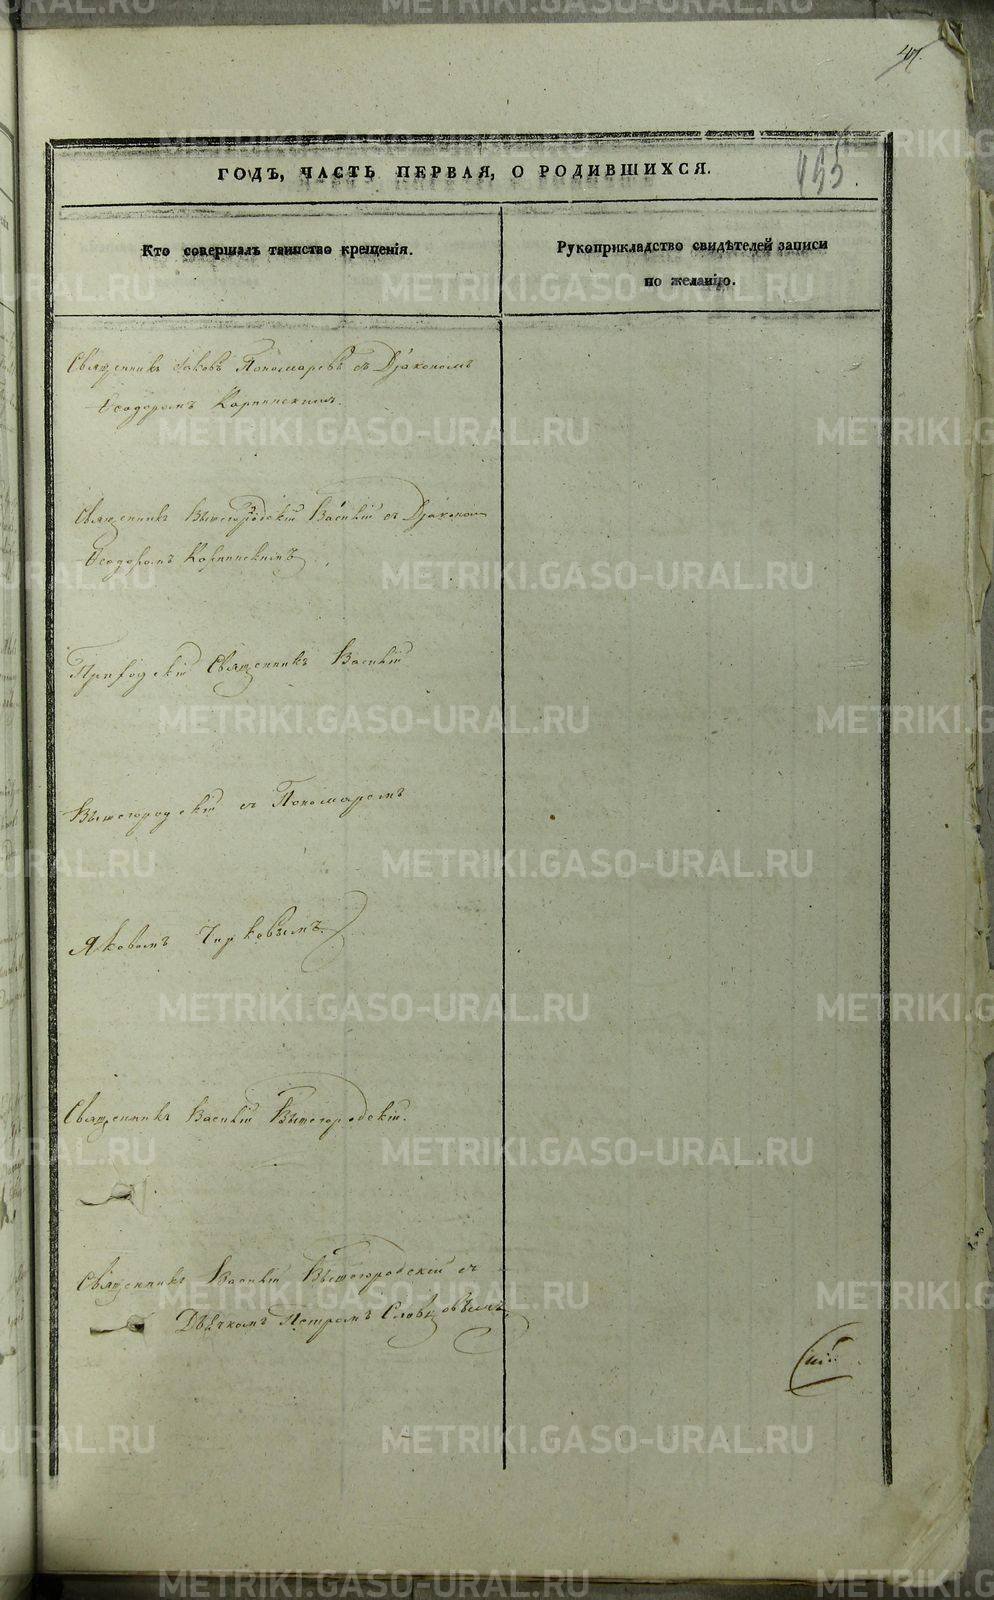 47.
195.
ГОДЪ, ЧАСТЬ ПЕРВАЯ, О РОДИВШИХСЯ.
Кто совершалъ таинство крещенія.
Рукоприкладство свидѣтелей записи
по желанію.
Священникъ Іаковъ Пономаревъ съ Діакономъ
Ѳеодоромъ Карпинскимъ.
Священникъ Вышегородскій Василій съ Діакономъ
Ѳеодоромъ Карпинскимъ
Приходскій Священникъ Василій
Вышегородскій съ Пономаремъ
Яковомъ Чирковымъ.
Священникъ Василій Вышегородскій.
Священникъ Василій Вышегородскій съ
Дьячкомъ Петромъ Словцовымъ.
METRIKI.GASO-URAL.RU